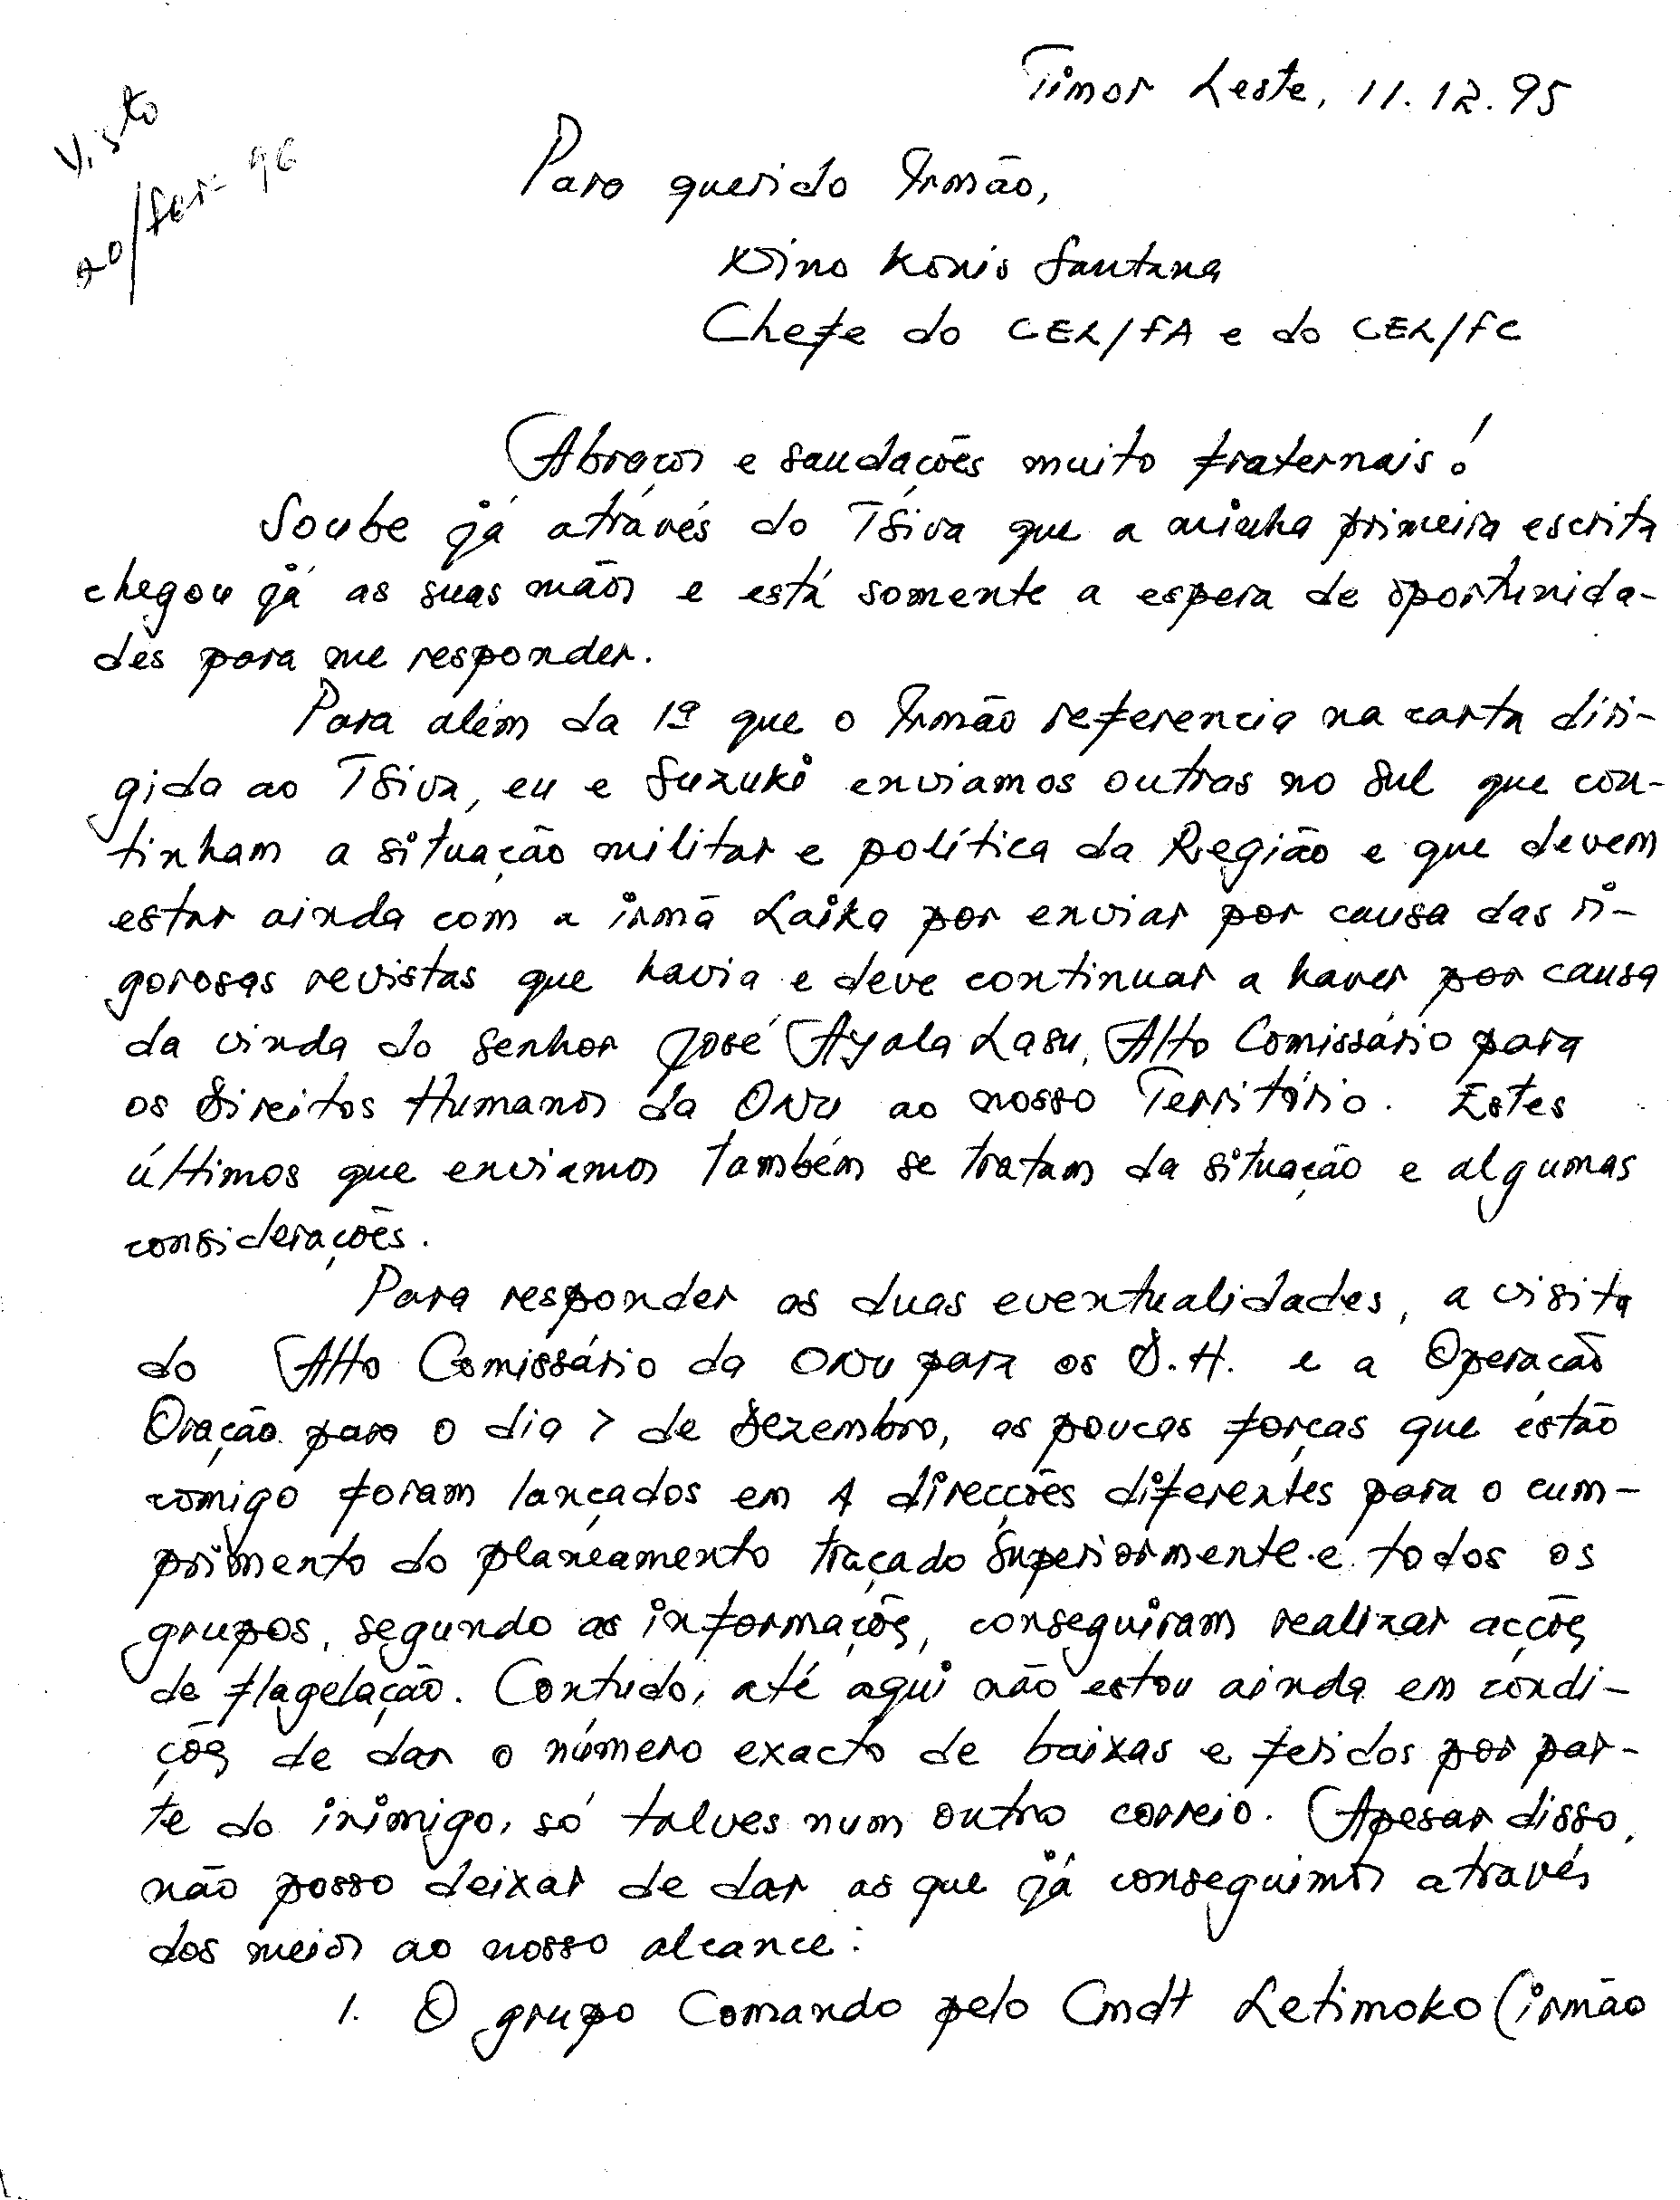 Timor Leste, 11.12.95
Visto
20/fev. 96
Para querido Irmão,
Nino Konis Santana
Chefe do CEL/FA e do CEL/FC
Abraços e saudações muito fraternais!
Soube já através do TSiva que a minha primeira escrita
chegou já as suas mãos e está somente a espera de oportunida-
des para me responder.
Para além da 1ª que o Irmão referencia na carta diri-
gida ao TSiva, eu e Suzuki enviamos outras no Sul que con-
tinham a situação militar e política da Região e que devem
estar ainda com a irmã Laika por enviar por causa das ri-
gorosas revistas que havia e deve continuar a haver por causa
da vinda do senhor José Ayala Lasu, Alto Comissário para
os Direitos Humanos da ONU ao nosso Território. Estes
últimos que enviamos também se tratam da situação e algumas
considerações.
Para responder as duas eventualidades, a visita
do Alto Comissário da ONU para os D.H. e a Operação
Oração para o dia 7 de Dezembro, as poucas forças que estão
comigo foram lançados em 4 direcções diferentes para o cum-
primento do planeamento traçado Superiormente e todos os
grupos, segundo as informações, conseguiram realizar acções
de flagelação. Contudo, até aqui não estou ainda em condi-
ções de dar o número exacto de baixas e feridos por par-
te do inimigo, só talves num outro correio. Apesar disso,
não posso deixar de dar as que já conseguimos através
dos meios ao nosso alcance:
1. O grupo Comando pelo Cmdt Letimoko (irmão